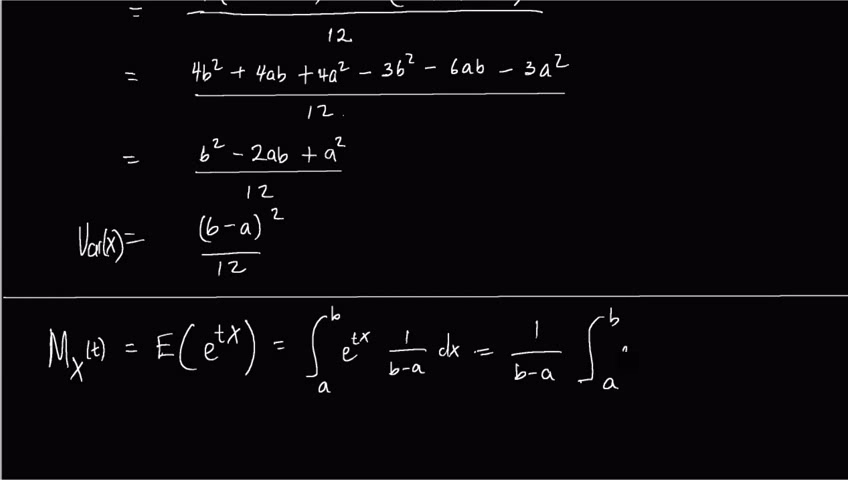 =
12
= 4b² + 4ab + 4a² − 3b² − 6ab − 3a²
12.
= b² − 2ab + a²
12
Var(x) = (b−a)²
12
M_X(t) = E(e^{tX}) = ∫_a^b e^{tx} 1/(b−a) dx = 1/(b−a) ∫_a^b